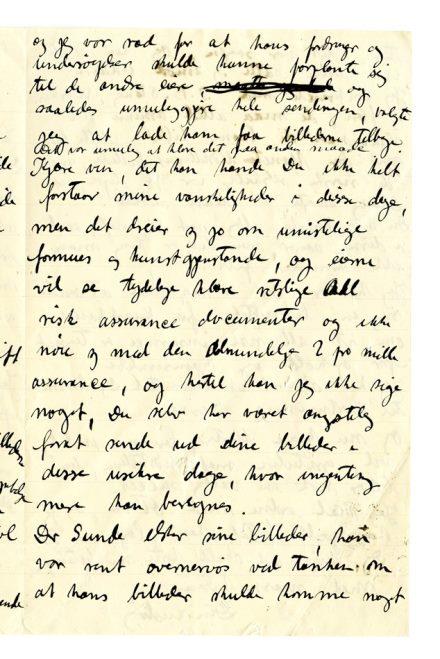 og jeg var rad for at hans fordringer og
undersögelser skulde kunne forplante sig
til de andre eiere og
saaledes umuliggjöre hele sendingen, valgte
jeg at lade ham faa billederne tilbage.
Det var umulig at klare det paa anden maade
Kjære ven, det kan hande Du ikke helt
forstaar mine vanskeligheder i disse dage,
men det dreier sig jo om umistelige
formues og kunstgjenstande, og eierne
vil se tydelige klare retslige All
risk assurance documenter og ikke
nöie sig med den almindelige 2 pro mille
assurance, og hertil kan jeg ikke sige
noget, Du selv har været ængstelig
for at sende ud dine billeder i
disse usikre dage, hvor ingenting
mere kan beregnes.
Dr Sunde elsker sine billeder, han
var rent overnervös ved tanken om
at hans billeder skulde komme noget